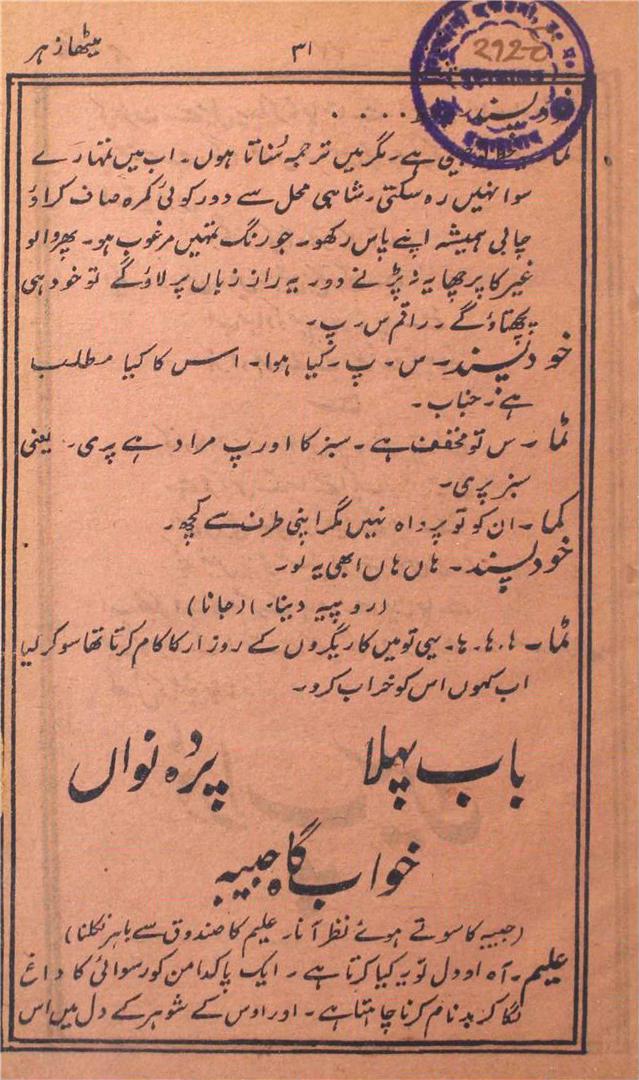 میٹھا زہر
۳۱
2920
خودپسند۔ . . . .
نما۔ ہے۔ مگر میں ترجمہ سُناتا ہوں۔ اب میں تمہارے
سوا نہیں رہ سکتی۔ شاہی محل سے دور کوئی کمرہ صاف کراؤ
چابی ہمیشہ اپنے پاس رکھو۔ جو رنگ تمہیں مرغوب ہو۔ بھروا لو
غیر کا پرچھایہ نہ پڑنے دو۔ یہ راز زباں پر لاؤ گے تو خود ہی
پچھتاؤ گے۔ راقم س۔ پ۔
خودپسند۔ س۔ پ۔ کیا ہوا۔ اس کا کیا مطلب
ہے۔ جناب۔
نما۔ س تو مخفف ہے۔ سبز کا اور پ مراد ہے پری۔ یعنی
سبز پری۔
نما۔ ان کو تو پرواہ نہیں مگر اپنی طرف سے کچھ۔
خودپسند۔ ہاں ہاں ابھی یہ لو۔
(روپیہ دینا۔) (جانا)
نما۔ ہا۔ ہا۔ ہا۔ یہی تو میں کاریگروں کے روزار کا کام کرتا تھا سو کر لیا
اب کہوں اس کو خراب کرو۔
باب پہلا پردہ نواں
خواب گاہ حبیبہ
(حبیبہ کا سوتے ہوئے نظر آنا۔ علیم کا صندوق سے باہر نکلنا)
علیم۔ آہ او دل تو یہ کیا کرتا ہے۔ ایک پاکدامن کو رسوائی کا داغ
لگا کر بدنام کرنا چاہتا ہے۔ اور اوس کے شوہر کے دل میں اس